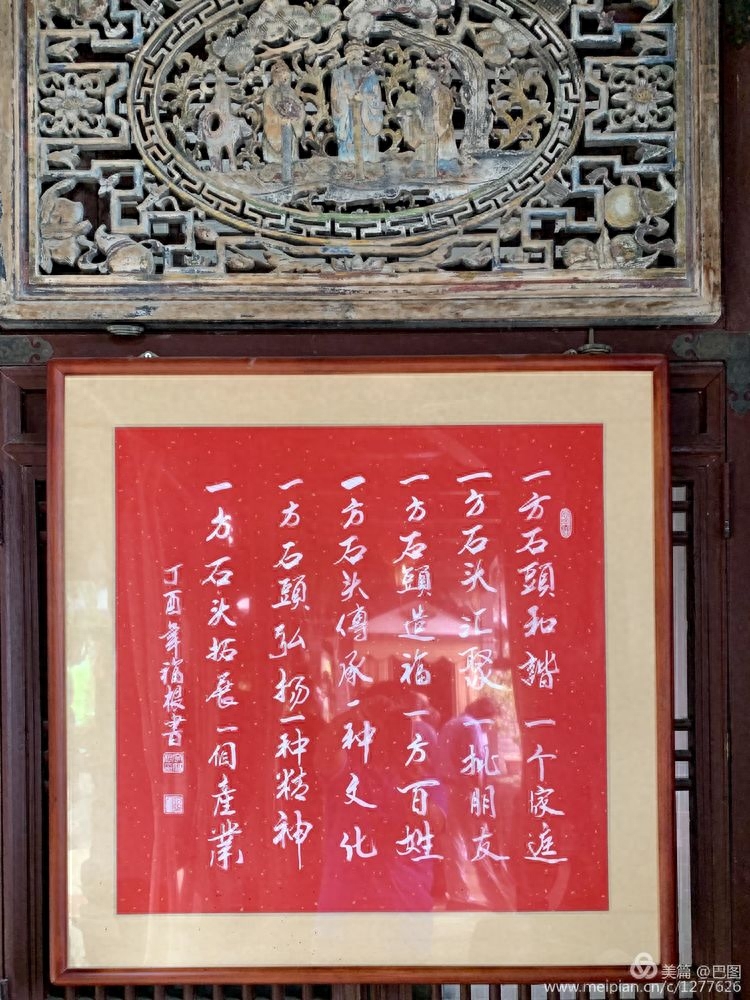 一方石頭和諧一个家庭
一方石头汇聚一批朋友
一方石頭造福一方百姓
一方石头傳承一种文化
一方石頭弘扬一种精神
一方石头拓展一個產業
丁酉年福根書
美篇 @巴图
www.meipian.cn/c/1277626